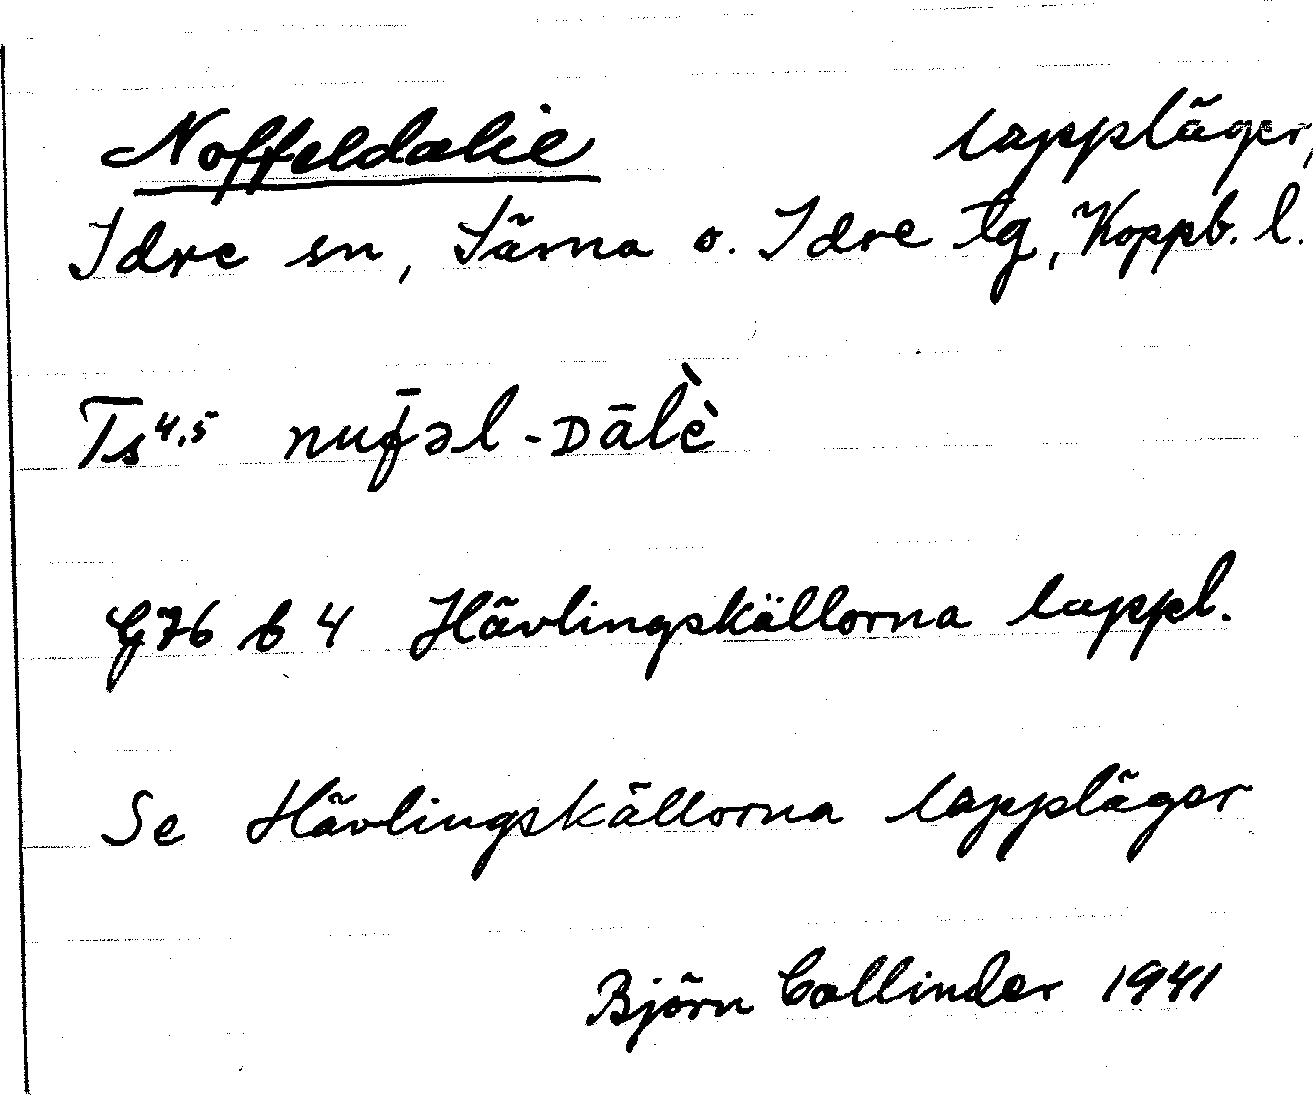 Noffeldalie lappläger,
Idre sn, Särna o. Idre tg, Koppb. l.
Ts 4.5 nuf̄əl-Dālè̀
G76 b 4 Hävlingskällorna lappl.
Se Hävlingskällorna lappläger
Björn Collinder 1941